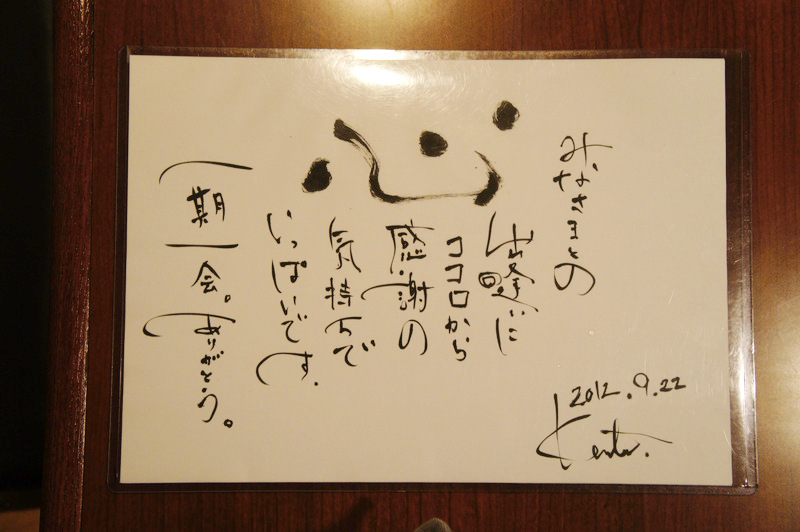 心
みなさまとの
出逢いに
ココロから
感謝の
気持ちで
いっぱいです.
一期一会。ありがとう。
2012.9.22
Kenta.